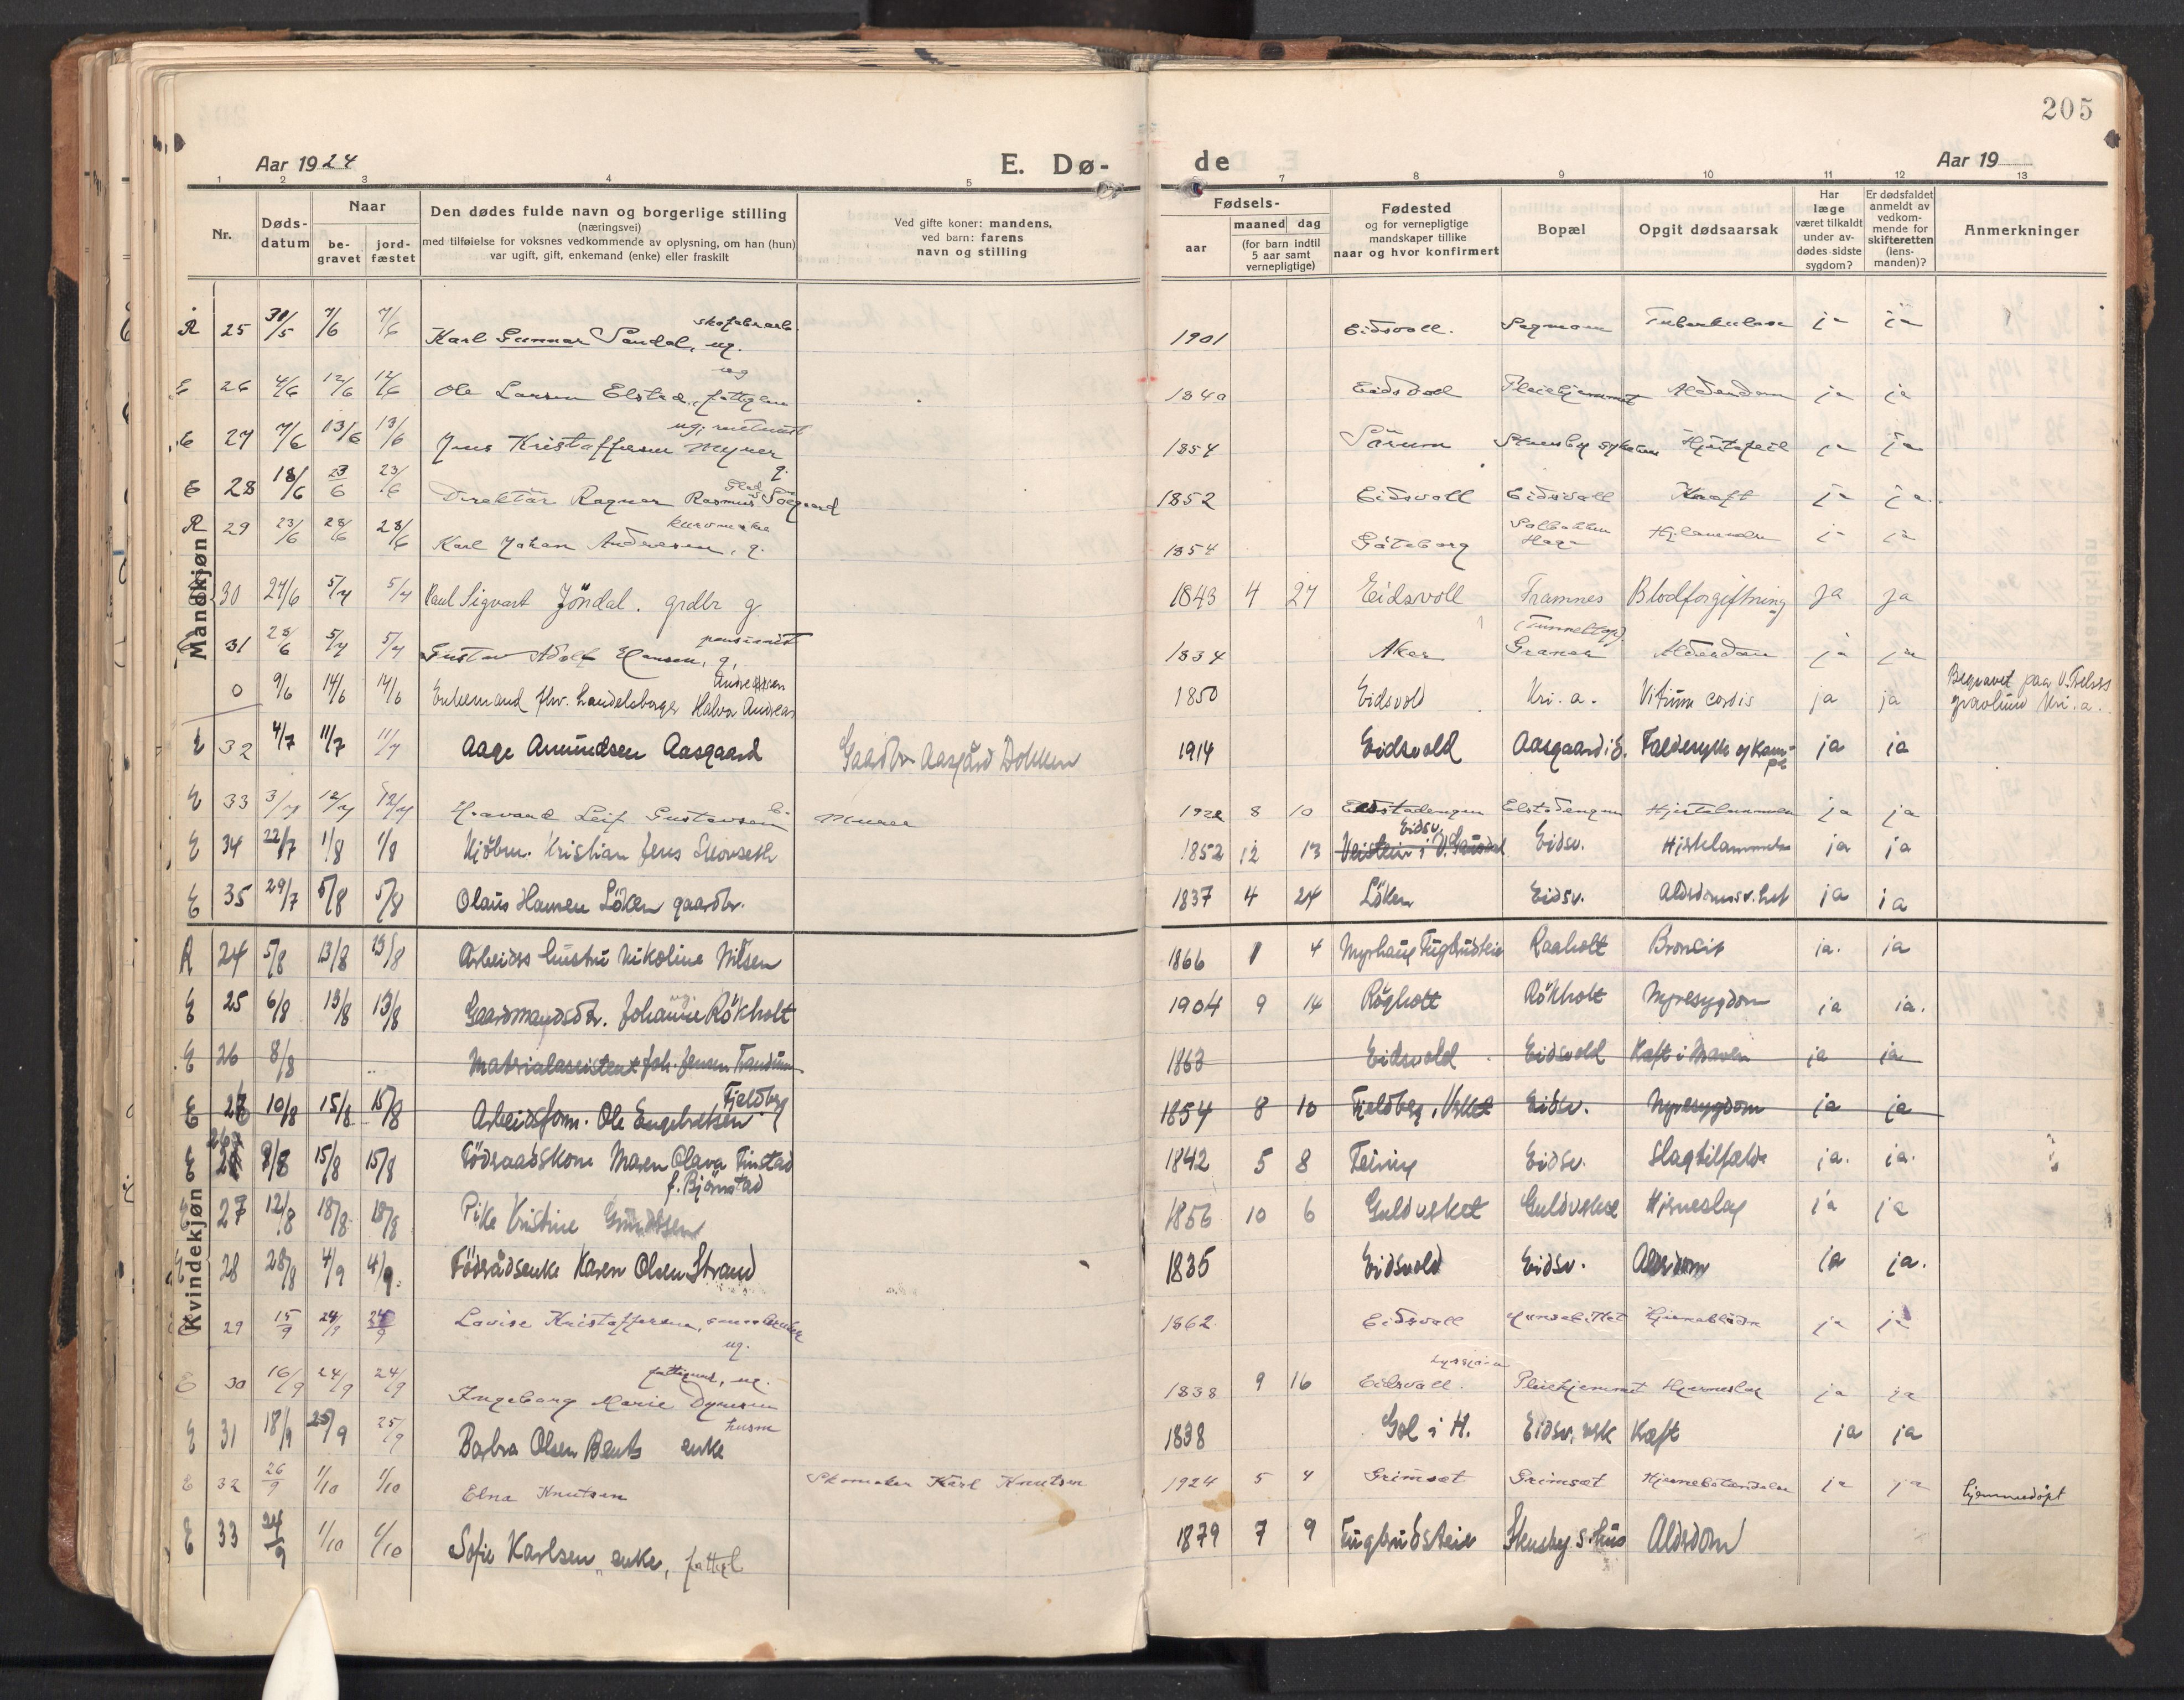 205
Aar 1924
E. Dø-
de
Aar 19
1 2 3 4 5 7 8 9 10 11 12 13
Nr.
Døds-
datum
Naar
be-
gravet
jord-
fæstet
Den dødes fulde navn og borgerlige stilling
(næringsvei)
med tilføielse for voksnes vedkommende av oplysning, om han (hun)
var ugift, gift, enkemand (enke) eller fraskilt
Ved gifte koner: mandens,
ved barn: farens
navn og stilling
Fødsels-
aar
maaned dag
(for barn indtil
5 aar samt
vernepligtige)
Fødested
og for vernepligtige
mandskaper tillike
naar og hvor konfirmert
Bopæl
Opgit dødsaarsak
Har
læge
været tilkaldt
under av-
dødes sidste
sygdom?
Er dødsfaldet
anmeldt av
vedkom-
mende for
skifteretten
(lens-
manden)?
Anmerkninger
Mandskjøn
R 25 30/5 7/6 7/6 Karl Gunnar Sandal, ug. 1901 Eidsvoll. Tuberkulose ja ja
E 26 4/6 12/6 12/6 Ole Larsen Elstad, ug 1840 Eidsvoll Pleiehjemmet Alderdom ja ja
E 27 7/6 13/6 13/6 Jens Kristoffersen Myrer ug. 1854 Sørum Hjertefeil ja ja
E 28 18/6 23/6 23/6 Direktør Ragnar Rasmus Solgaard g. 1852 Eidsvoll Eidsvoll Kræft ja ja
R 29 23/6 28/6 28/6 Karl Johan Andersen, g. kurvmaker 1854 Gøteborg Haga ja ja
30 27/6 5/7 5/7 Paul Sigvart Jöndal. grdbr g 1843 4 27 Eidsvoll Tramnes Blodforgiftning ja ja
31 28/6 5/7 5/7 Gustav Adolf Hansen, g, pensionist 1834 Aker Alderdom ja ja
0 9/6 14/6 14/6 Enkemand fhv. handelsborger Halvor Andreas Andreassen 1850 Eidsvold Kri.a. Vitium cordis ja ja Begravet paa V. Frelsers gravlund Kri.a.
E 32 4/7 11/7 11/7 Aage Amundsen Aasgaard Gaardbr Aasgård Dokken 1914 Eidsvold Aasgaard i E. Faldesyke og ja ja
E 33 3/7 12/7 12/7 Havard Leif Gustavsen Murer 8 10 Elstadengen Elstadengen Hjertelammelse ja ja
E 34 22/7 1/8 1/8 Kjöbm. Kristian Jens Skovseth 1852 12 13 Eidsv. Eidsv. Hjertelammelse ja ja
E 35 29/7 5/8 5/8 Olaus Hansen Löken gaardbr. 1837 4 24 Löken Eidsv. ja ja
Kvindekjøn
R 24 5/8 13/8 13/8 Arbeiders hustru Nikoline Nilsen 1866 1 4 Myrhaug Raaholt Broncit ja. ja
E 25 6/8 13/8 13/8 Gaardmandsdtr. Johanne Rökholt ug. 1904 9 14 Rögholt Rökholt Nyresygdom ja ja.
E 26 8/8 Materialassistent Joh. Jensen Trandum 1863 Eidsvold Eidsvold Kræft i Maven ja ja
E 10/8 15/8 15/8 Arbeidsform. Ole Engebretsen Fjeldberg 1854 8 10 Fjeldberg, Eidsv. Nyresygdom ja ja
E 8/8 15/8 15/8 Födraadskone Maren Olava Finstad f. Björnstad 1842 5 8 Feiring Eidsv. Slagtilfælde ja. ja.
27 12/8 18/8 18/8 Pike Kristine Gundersen 1856 10 6 Guldverket Guldverket Hjerneslag ja ja
28 28/8 4/9 4/9 Födrådsenke Karen Olsen Strand 1835 Eidsvold Eidsv. Alderdom ja ja.
29 15/9 24/9 24/9 Lovise Kristoffersen, ug. 1862 Eidsvoll Hjerneblødn ja ja
E 30 16/9 24/9 24/9 Ingeborg Marie Dynesen fattigunr, ug. 1838 9 16 Eidsvoll. Pleiehjemmet Hjerneslag ja ja
E 31 18/9 25/9 25/9 Barbra Olsen enke husm 1838 Gol i H. Eidsv. verk Kræft ja ja
E 32 26/9 1/10 1/10 Elna Knutsen Skomaker Karl Knutsen 1924 5 4 Grimsæt Grimsæt Hjernebetændelse ja ja hjemmedöpt
E 33 24/9 1/10 1/10 Sofie Karlsen, enke, fattigl 1879 7 9 Alderdom